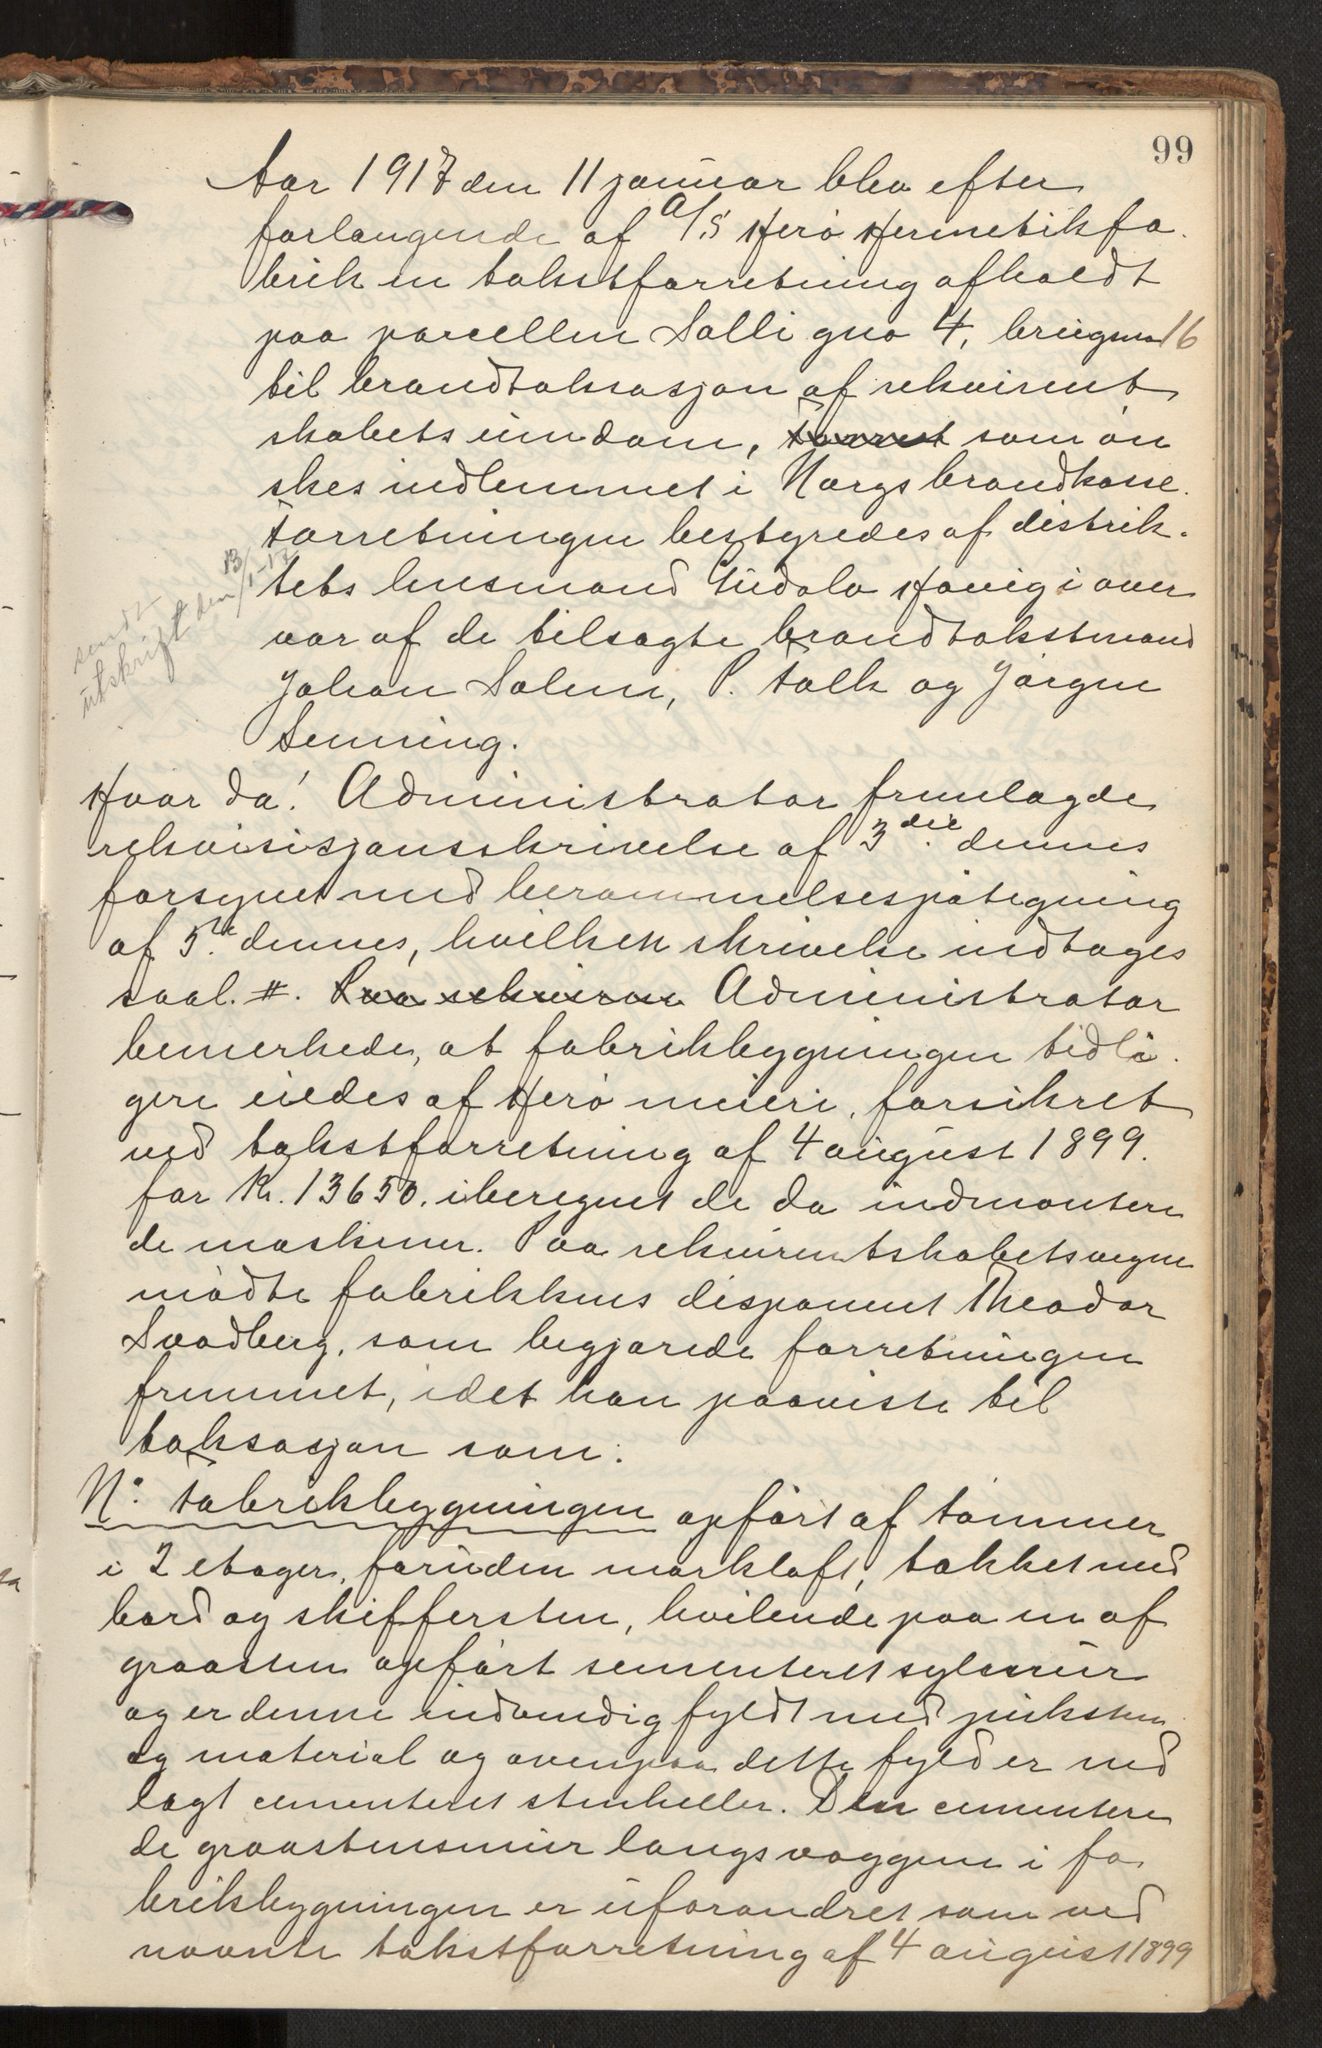 99
Aar 1917 den 11 januar blev efter
forlangende af A/S Herø Hermetikfa-
brik en takstforretning afholdt
paa parcellen Salli gno 4, brugsno 16
til brandtaksasjon af rekvirent
skabets eiendom, Forret som øn
skes indlemmet i Norgs brandkasse.
Forretningen bestyredes af distrik-
tets lensmand Gudolv Høvig i over
vær af de tilsagte brandtakstmænd
Johan Salem, P. Falk og Jørgen
Senning.
sendt
utskrift den 13/1-17
Hvor da! Administrator fremlagde
rekvisisjonsskrivelse af 3die dennes
forsynet med berammelsespåtegning
af 5te dennes, hvilken skrivelse indtages
saal. #. Paa rekvirent Administrator
bemerkede, at fabrikbygningen tidli-
gere eiedes af Herø meieri, forsikret
ved takstforretning af 4 august 1899.
for Kr. 13650. iberegnet de da indmontere
de maskiner. Paa rekvirentskabets vegne
mødte fabrikkens disponent Theodor
Svadberg, som begjærede forretningen
fremmet, idet han paaviste til
taksasjon som:
No. Fabrikbygningen opført af tømmer
i 2 etager, foruden mørkloft, takket med
bord og skiffersten, hvilende paa en af
graasten opført sementeret sylemur
og er denne indvendig fyldt med puksten
og material og ovenpaa dette fyld er ned
lagt cementeret stenheller. Den cementere
de graastensmur langs væggene i fa
brikbygningen er uforandret som ved
nævnte takstforretning af 4 august 1899